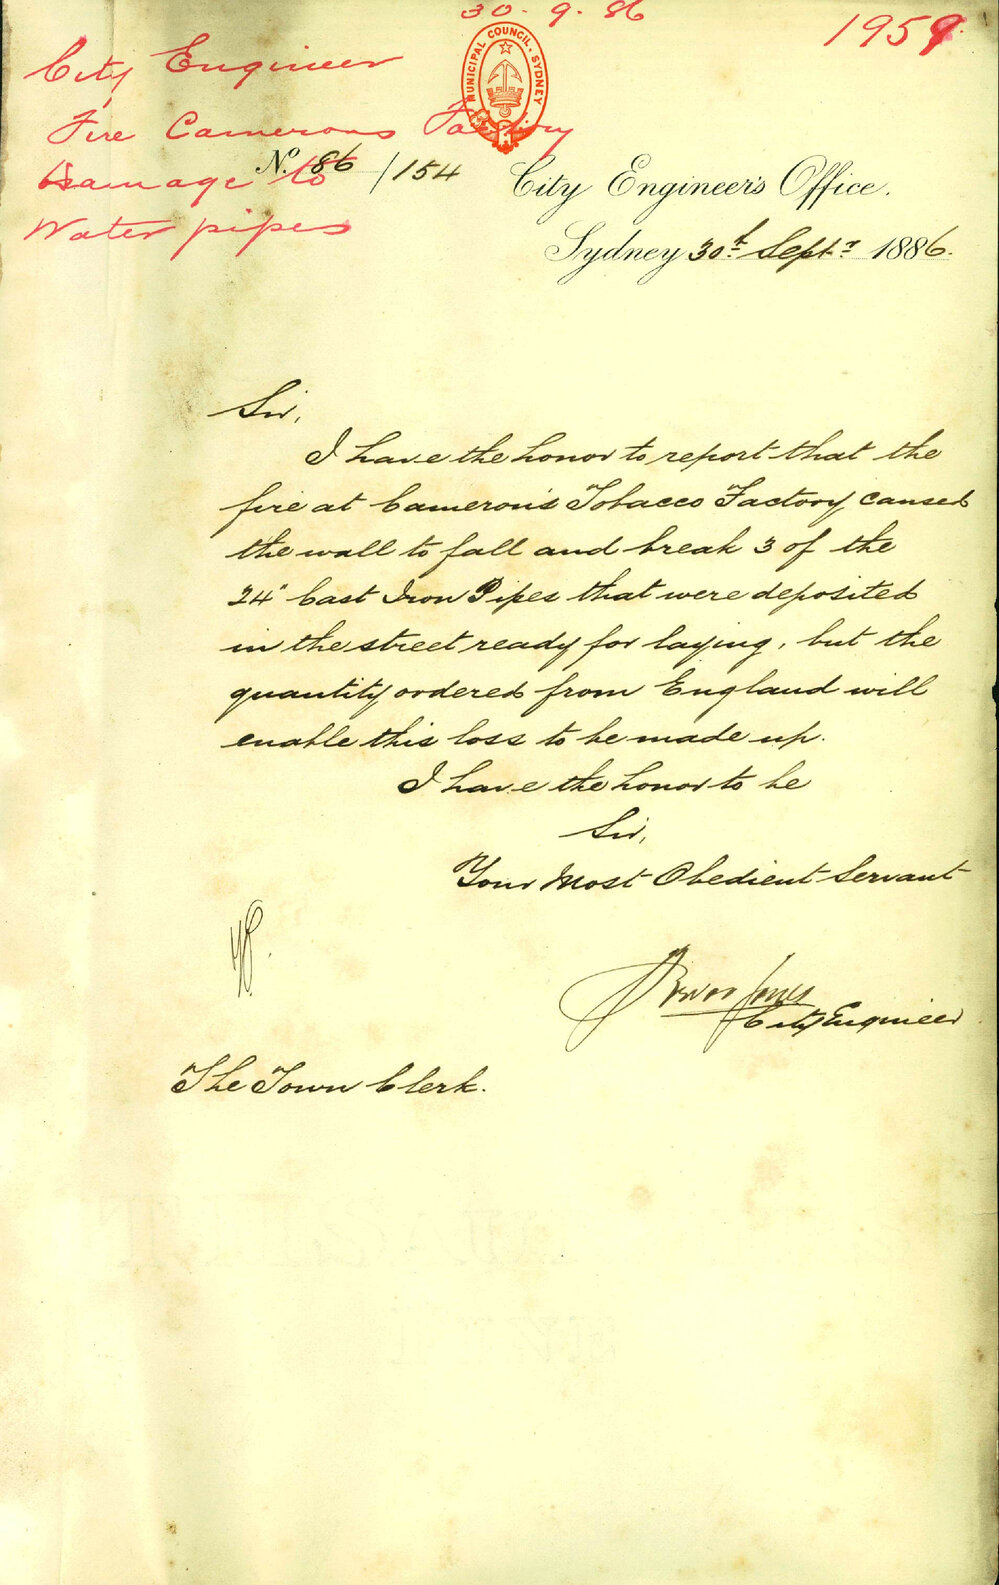 30. 9. 86
1959.
City Engineer
Fire Camerons Factory
Damage to
Water pipes
MUNICIPAL COUNCIL. SYDNEY
No. 86/154
City Engineer's Office.
Sydney 30th Septr 1886.
Sir,
I have the honor to report that the
fire at Cameron's Tobacco Factory caused
the wall to fall and break 3 of the
24" Cast Iron Pipes that were deposited
in the street ready for laying, but the
quantity ordered from England will
enable this loss to be made up.
I have the honor to be
Sir,
Your Most Obedient Servant
Trevor Jones
City Engineer
The Town Clerk.